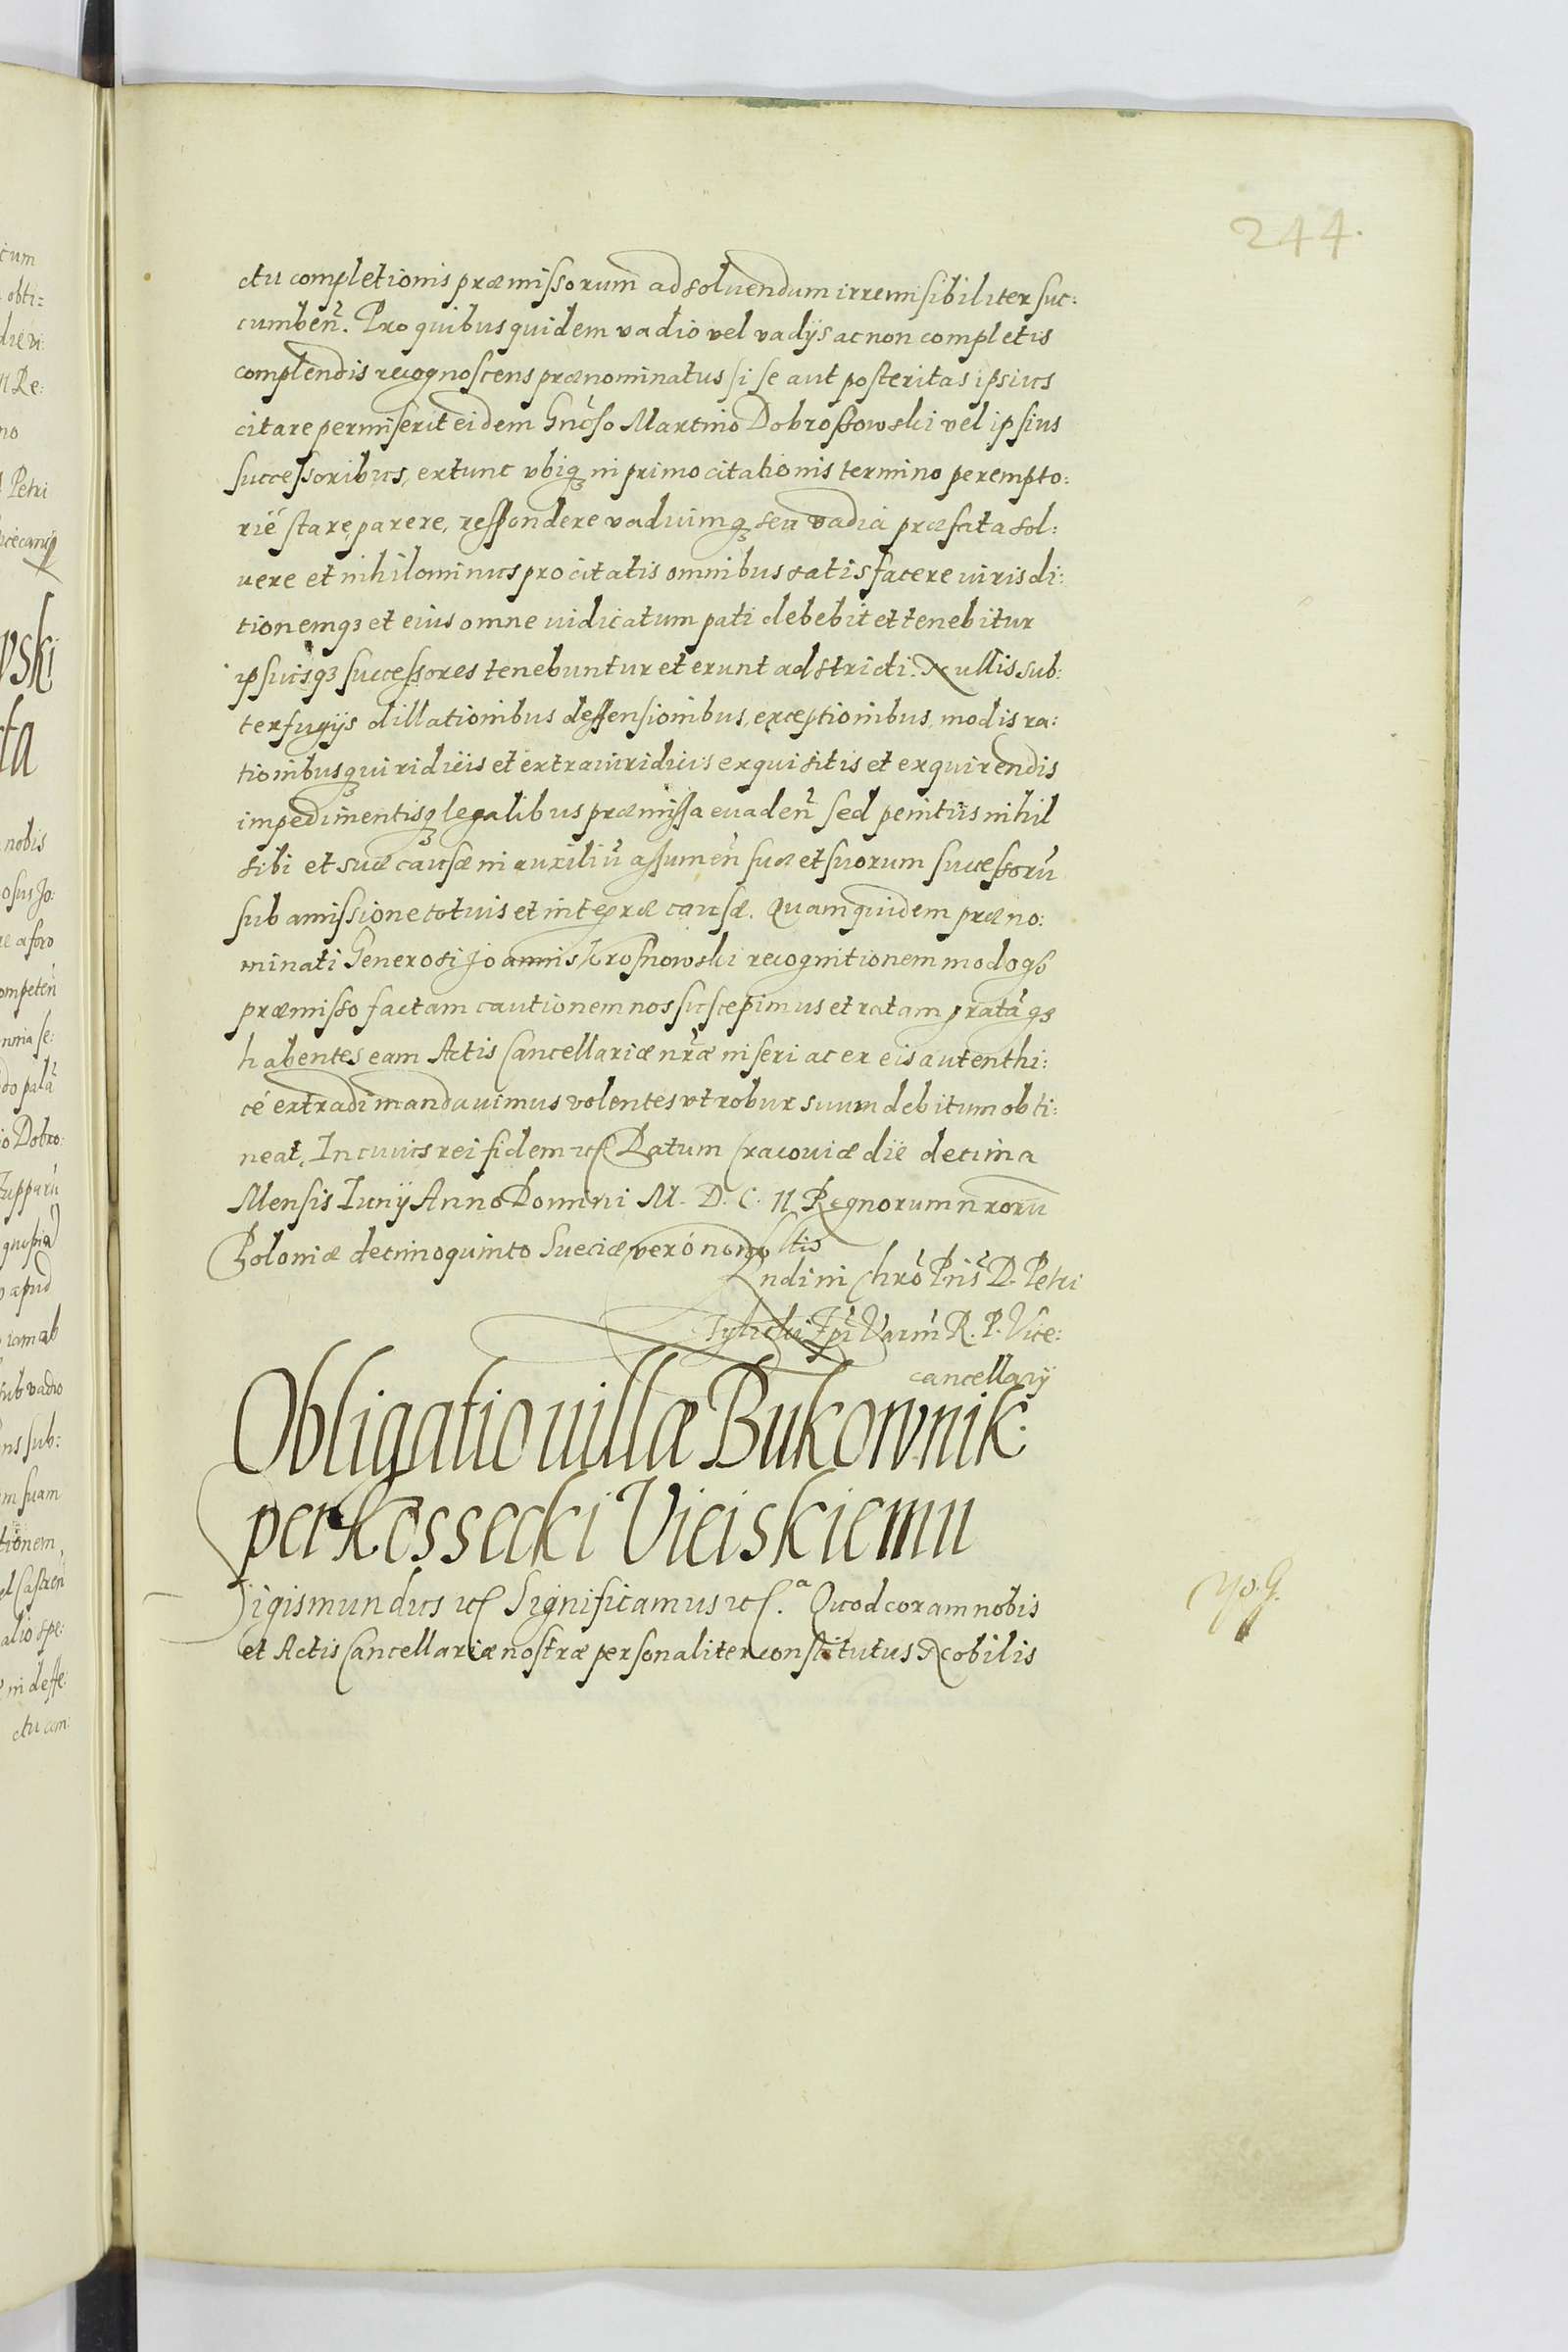 244.
ctu completionis præmissorum ad soluendum irremisibiliter suc:
cumbeñ. Pro quibus quidem vadio vel vadijs ac non completis
complendis recognoscens prænominatus si se aut posteritas ipsius
citare permiserit eidem Gnõso Martino Dobrossowski vel ipsius
successoribus, extunc vbiqꝫ in primo citationis termino perempto:
rié stare, parere, respondere vadiumqꝫ seu vadia præfata sol:
uere et nihilominus pro citatis omnibus satisfacere iurisdi:
tionemqꝫ et eius omne iudicatum pati debebit et tenebitur
ipsiusqꝫ successores tenebuntur et erunt adstricti. Nullis sub:
terfugijs dillationibus deffensionibus, exceptionibus, modis ra:
tionibusqꝫ iuridicis et extraiuridicis exquisitis et exquirendis
impedimentisqꝫ legalibus præmissa euadeñ sed penitus nihil
sibi et suæ causæ in auxiliũ assumeñ suæ et suorum successorũ
sub amissione totius et integræ causæ. Quam quidem præno:
minati Generosi Joannis Krosnowski recognitionem modo qȝ
præmisso factam cautionem nos suscepimus et ratam gratãqꝫ
habentes eam Actis Cancellariæ nr̃æ inseri ac ex eis autenthi:
cé extradi mandauimus volentes vt robur suum debitum obti:
neat. In cuius rei fidem etc Datum Cracouiæ die decima
Mensis Iunij Anno Domini M. D. C. II Regnorum nr̃orũ
Poloniæ decimoquinto Sueciæ veró nono
Rndi in Chrõ Pris D. Petri
Tylicki Epi Varm̃ R. P. Vice:
cancellarij
Obligatio uillæ Bukownik:
per Kossecki Vieiskiemu
Sigismundus etc Significamus etc.ª Quod coram nobis
et Actis Cancellariæ nostræ personaliter constitutus Nobilis